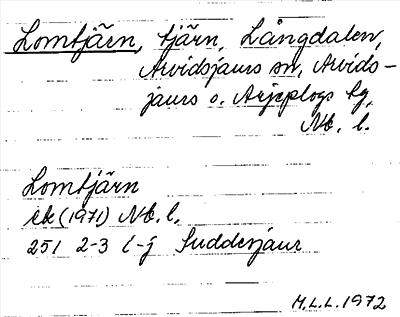 Lomtjärn, tjärn, Långdalen,
Arvidsjaurs sn, Arvids-
jaurs o. Arjeplogs tg,
Nb. l.
Lomtjärn
ek (1971) Nb. l.
25I 2-3 i-j Suddesjaur
M.L.L. 1972